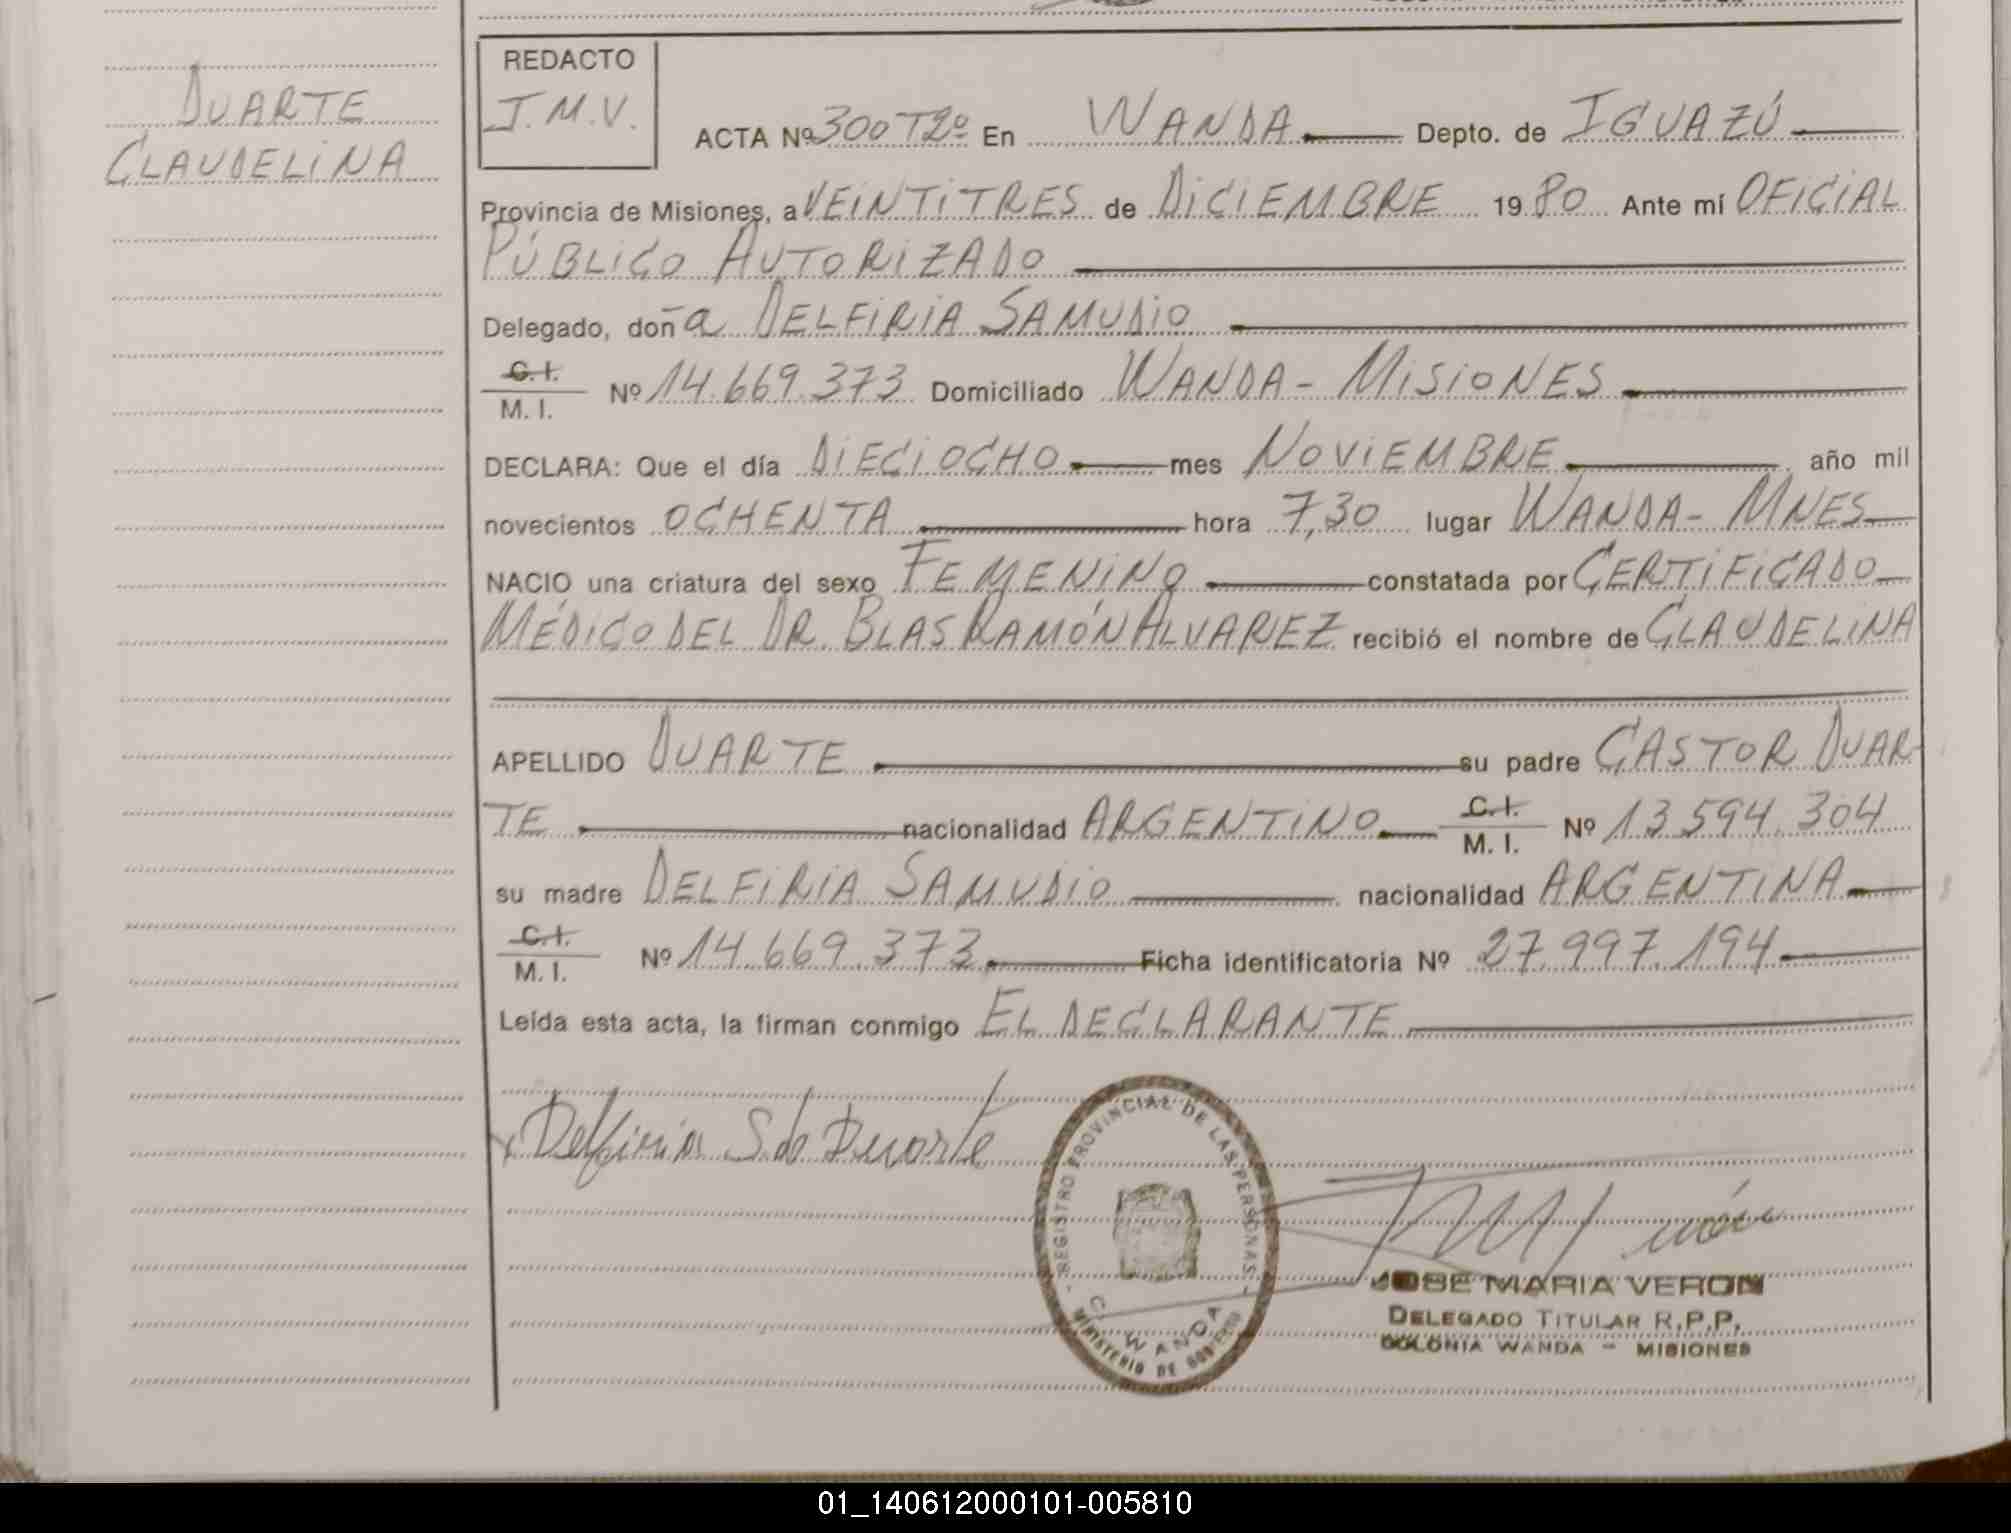 DUARTE
CLAUDELINA
REDACTO
J.M.V.
ACTA Nº 300 T2º En WANDA Depto. de IGUAZÚ
Provincia de Misiones, a VEINTITRES de DICIEMBRE 1980 Ante mí OFICIAL
PÚBLICO AUTORIZADO
Delegado, doña DELFIRIA SAMUDIO
C.I.
M. I. Nº 14.669.373 Domiciliado WANDA - MISIONES
DECLARA: Que el día DIECIOCHO mes NOVIEMBRE año mil
novecientos OCHENTA hora 7,30 lugar WANDA - MNES
NACIO una criatura del sexo FEMENINO constatada por CERTIFICADO
MÉDICO DEL DR. BLAS RAMÓN ALVAREZ recibió el nombre de CLAUDELINA
APELLIDO DUARTE su padre CASTOR DUAR-
TE nacionalidad ARGENTINO C.I.
M. I. Nº 13.594.304
su madre DELFIRIA SAMUDIO nacionalidad ARGENTINA
C.I.
M. I. Nº 14.669.373 Ficha identificatoria Nº 27.997.194
Leída esta acta, la firman conmigo EL DECLARANTE
Delfiria S de Duarte
REGISTRO PROVINCIAL DE LAS PERSONAS
C. WANDA
MINISTERIO DE GOBIERNO
JOSE MARIA VERON
DELEGADO TITULAR R.P.P.
COLONIA WANDA - MISIONES
01_140612000101-005810